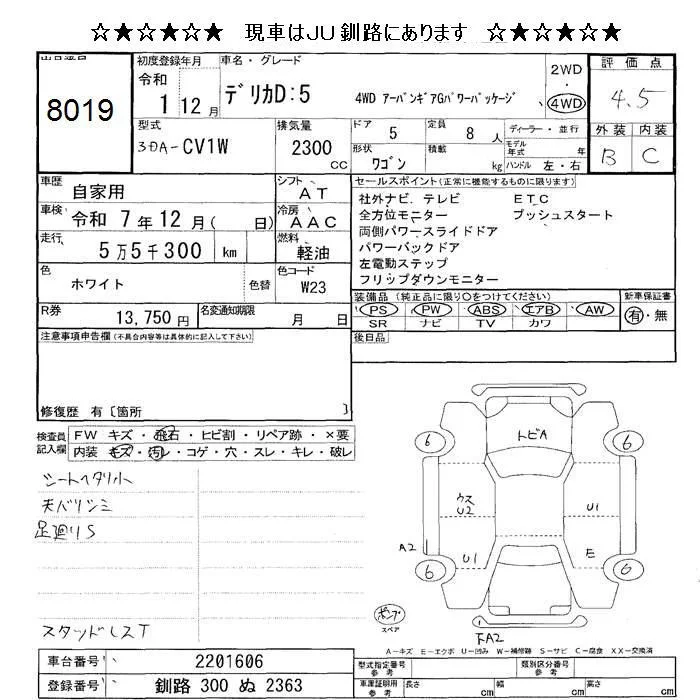 ☆★☆★☆★ 現車はJU釧路にあります ☆★☆★☆★
出品番号
8019
初度登録年月
令和
1 12 月
車名・グレード
デリカD:5 4WD アーバンギアGパワーパッケージ
2WD
・
4WD
評価点
4.5
外装 内装
B C
型式
3DA-CV1W
排気量
2300
CC
ドア
5
定員
8 人
ディーラー・並行
モデル年式 年
形状
ワゴン
積載
kg
ハンドル 左・右
車歴
自家用
シフト
AT
車検
令和 7年12月( 日)
冷房
AAC
走行
5万5千300 km
燃料
軽油
色
ホワイト
色替
色コード
W23
R券
13,750 円
名変通知期限
月 日
セールスポイント(正常に機能するものに限ります)
社外ナビ.テレビ ETC
全方位モニター プッシュスタート
両側パワースライドドア
パワーバックドア
左電動ステップ
フリップダウンモニター
装備品(純正品に限り○をつけてください)
PS PW ABS エアB AW
SR ナビ TV カワ
新車保証書
有・無
後日品
注意事項申告欄(不具合内容等は具体的に記入して下さい)
修復歴 有〔箇所 〕
検査員記入欄
FW キズ・飛石・ヒビ割・リペア跡・×要
内装 キズ・汚レ・コゲ・穴・スレ・キレ・破レ
シートヘタリ小
天バリシミ
足廻りS
スタッドレスT
トビA
6
6
6
6
ウス
U2
U1
A2
U1
E
下A2
ポンプ
スペア
A-キズ E-エクボ U-凹み W-補修跡 S-サビ C-腐食 XX-交換済
車台番号
2201606
登録番号
釧路 300 ぬ 2363
型式指定番号
参考
類別区分番号
参考
車庫証明用
参考
長さ cm
幅 cm
高さ cm